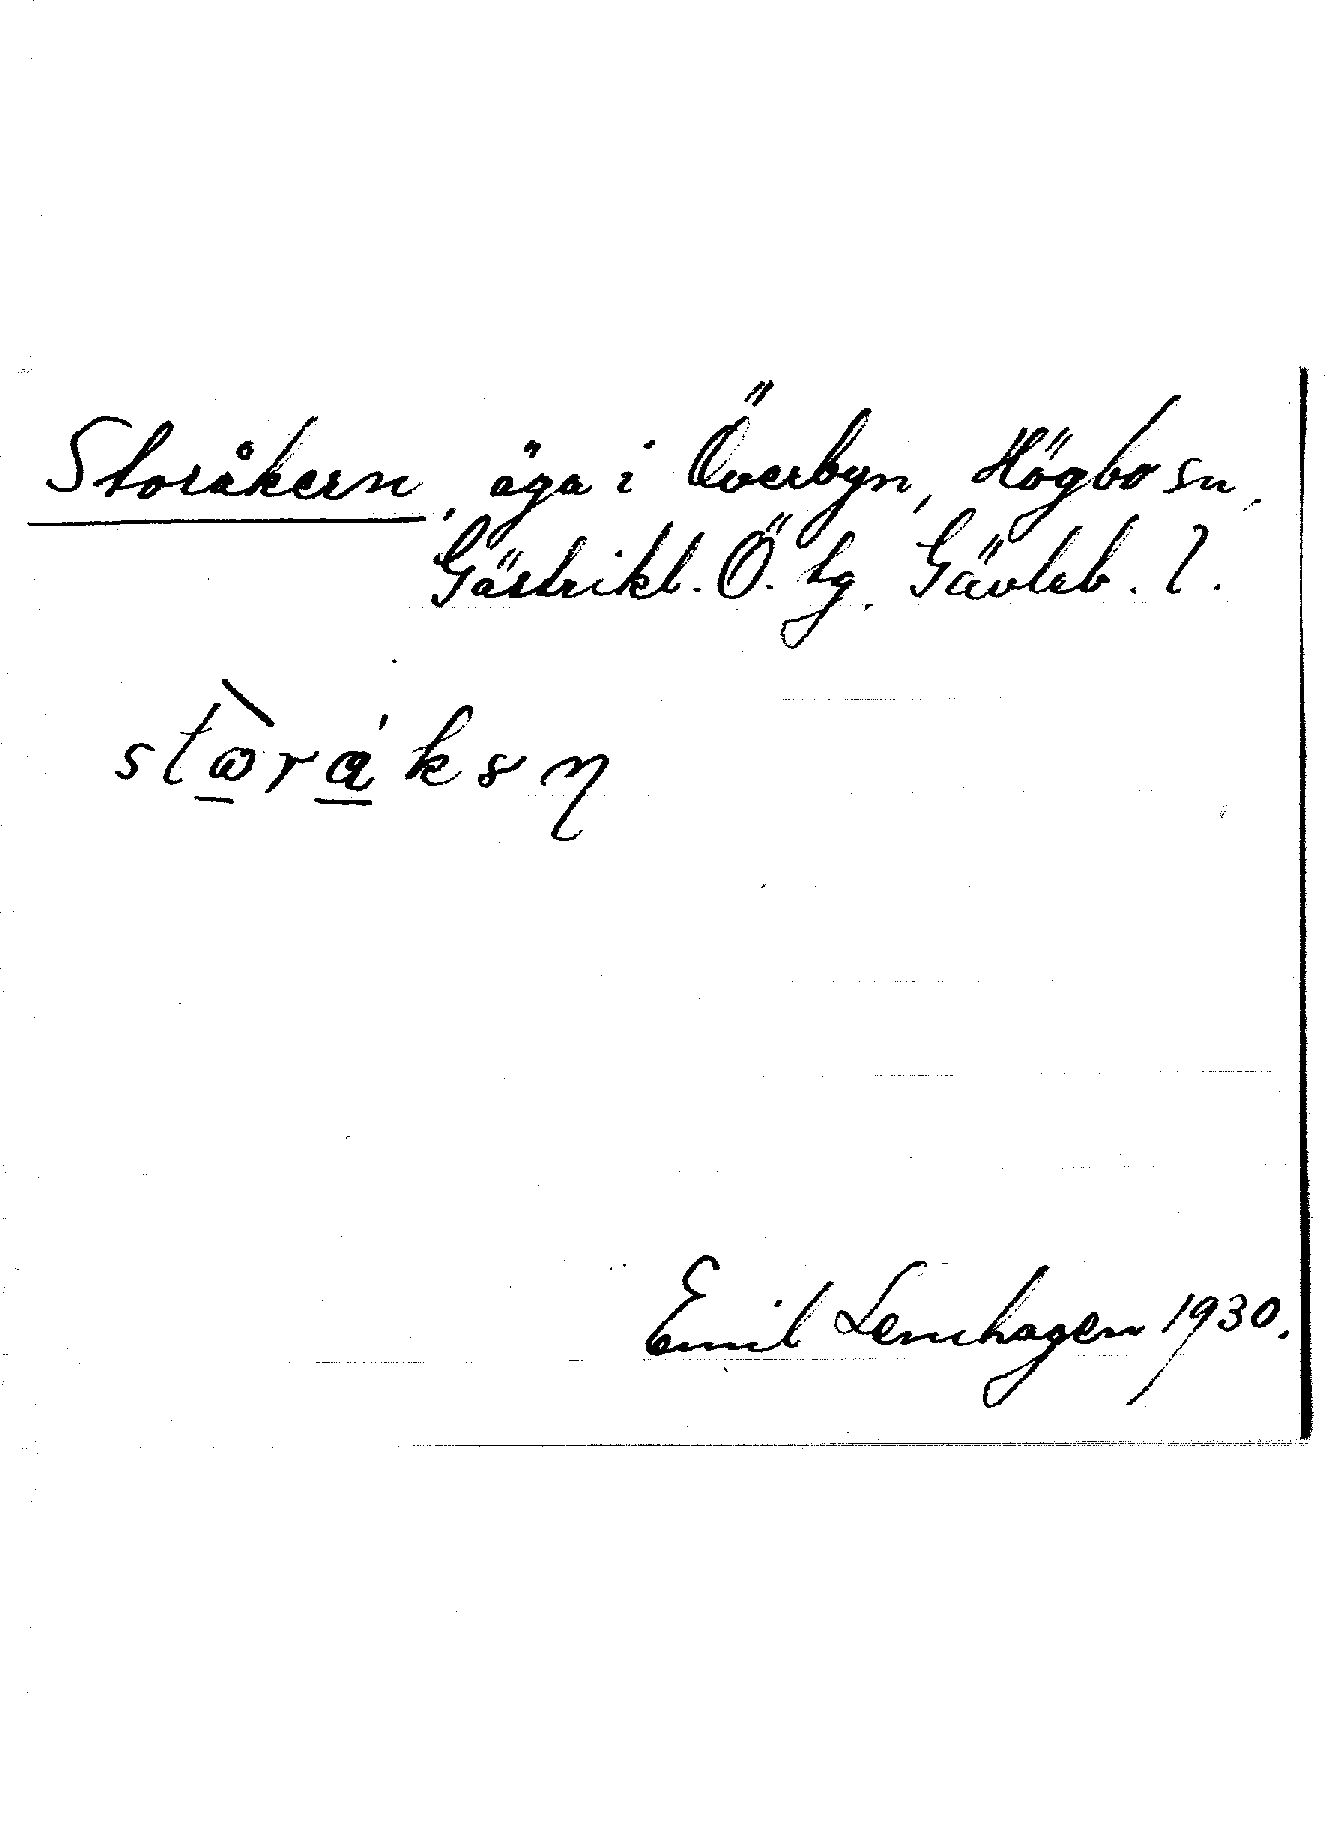 Storåkern, äga i Överbyn, Högbo sn,
Gästrikl. Ö. tg. Gävleb. l.
stò̠rǻ̠kəɳ
Emil Lenhagen 1930.